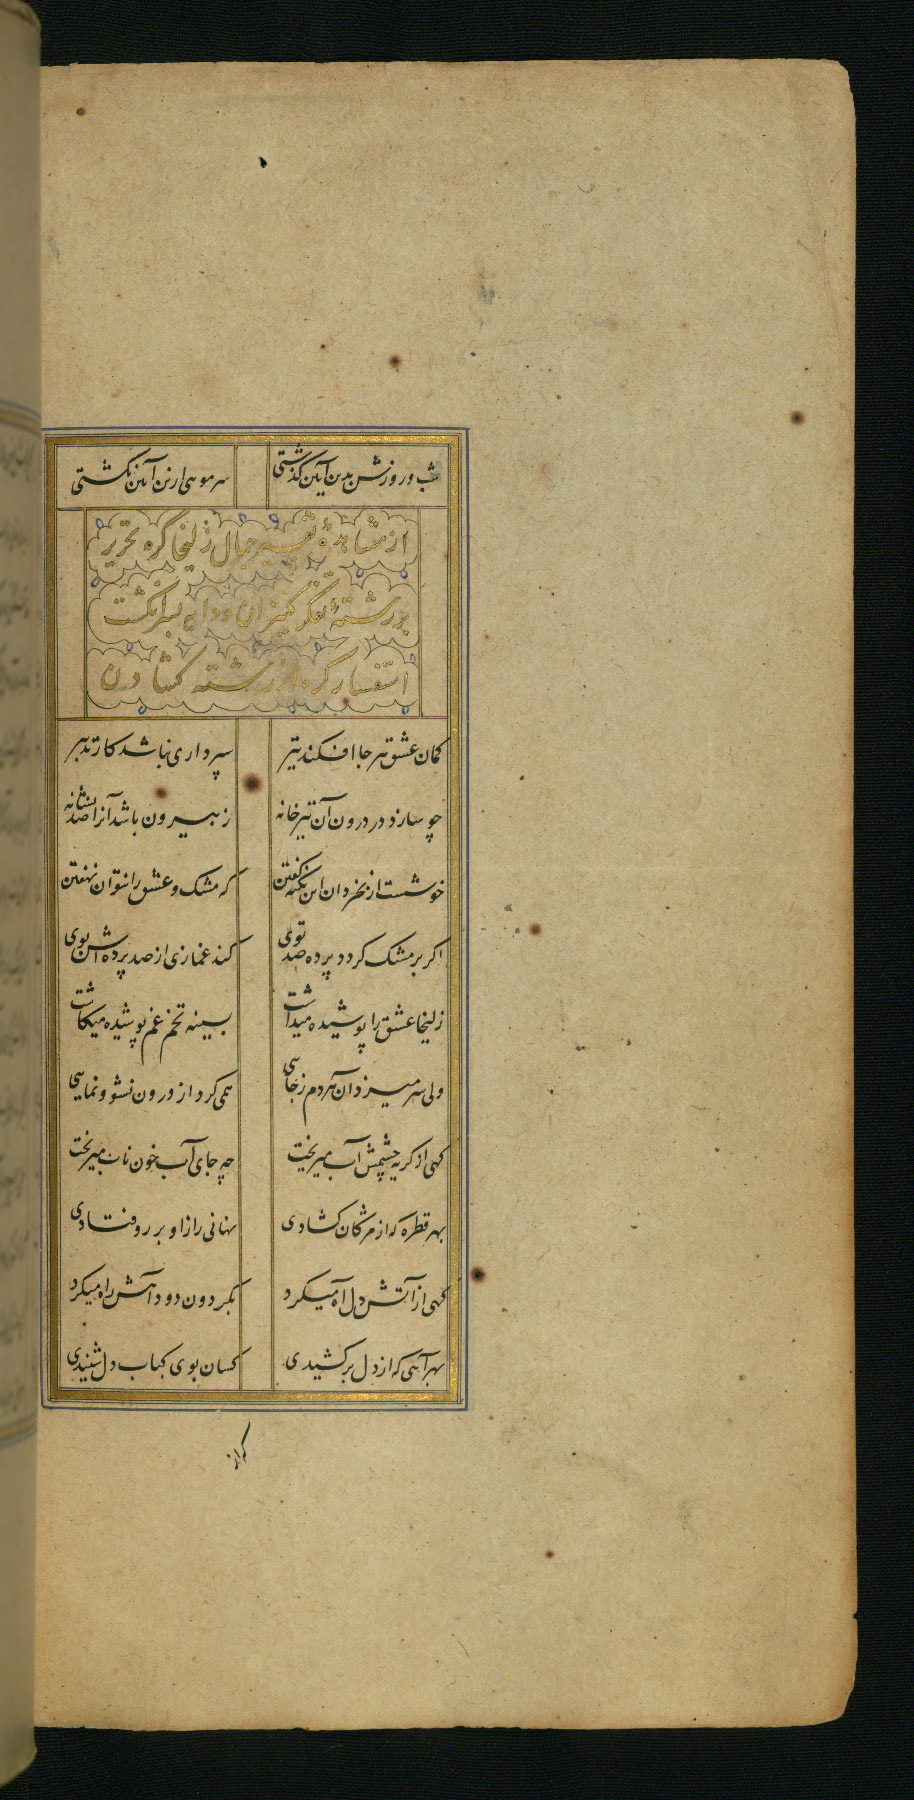 شب و روزش بدین آیین گذشتی سر مویی ازین آیین نگشتی
از مشاهدهٔ تغییر جمال زلیخا گره تحریر
بر رشتهٔ تفکر کنیزان و دایه بسرانگشت
استفسار گره از رشته گشادن
کمان عشق هر جا افکند تیر سپرداری نباشد کار تدبیر
چو سازد در درون آن تیر خانه ز بیرون باشد آنرا صد نشانه
خوشست از بخردان این نکته گفتن که مشک و عشق را نتوان نهفتن
اگر بر مشک گردد پرده صد توی کند غمازی از صد پرده اش بوی
زلیخا عشق را پوشیده میداشت بسینه تخم غم پوشیده میکاشت
ولی سر میزد آن هر دم ز جایی همی کرد از درون نشو و نمایی
گهی از گریه چشمش آب میریخت چه جای آب خون ناب میریخت
بهر قطره که از مژگان گشادی نهانی راز او بر رو فتادی
گهی از آتش دل آه میکرد بگردون دود آهش راه میکرد
بهر آهی که از دل برکشیدی کسان بوی کباب دل شنیدی